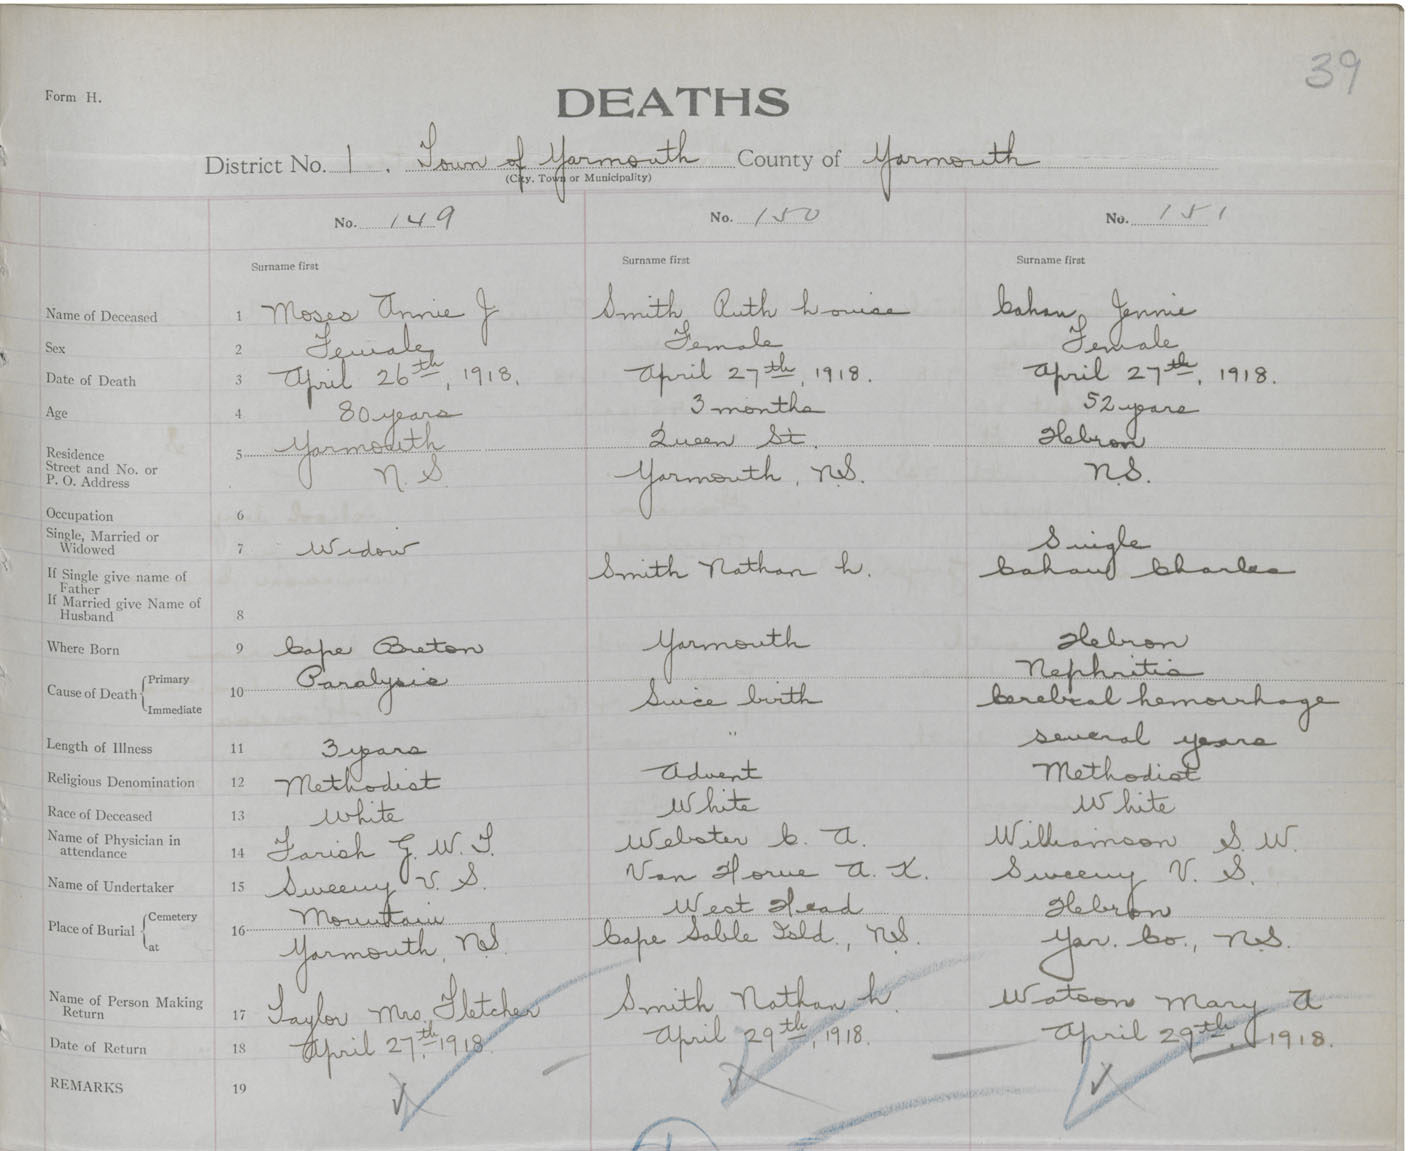 39
Form H.
DEATHS
District No. 1. Town of Yarmouth County of Yarmouth
(City, Town or Municipality)
No. 149 No. 150 No. 151
Surname first Surname first Surname first
Name of Deceased 1 Moses Annie J Smith Ruth Louise Cahan, Jennie
Sex 2 Female Female Female
Date of Death 3 April 26th, 1918. April 27th, 1918. April 27th, 1918.
Age 4 80 years 3 months 52 years
Residence 5 Yarmouth Queen St. Hebron
Street and No. or
P. O. Address N. S. Yarmouth, N.S. N.S.
Occupation 6
Single, Married or
Widowed 7 Widow Single
If Single give name of Smith Nathan L. Cahan Charles
Father
If Married give Name of
Husband 8
Where Born 9 Cape Breton Yarmouth Hebron
Cause of Death Primary 10 Paralysis Nephritis
Immediate Since birth Cerebral hemorrhage
Length of Illness 11 3 years " several years
Religious Denomination 12 Methodist Advent Methodist
Race of Deceased 13 White White White
Name of Physician in
attendance 14 Farish G. W. T. Webster C. A. Williamson S. W.
Name of Undertaker 15 Sweeny V. S. Van Horne A. K. Sweeny V. S.
Place of Burial Cemetery 16 Mountain West Head Hebron
at Yarmouth, N.S. Cape Sable Isld., N.S. Yar. Co., N.S.
Name of Person Making
Return 17 Taylor Mrs. Fletcher Smith Nathan L Watson Mary A
Date of Return 18 April 27th, 1918. April 29th, 1918. April 29th, 1918.
REMARKS 19